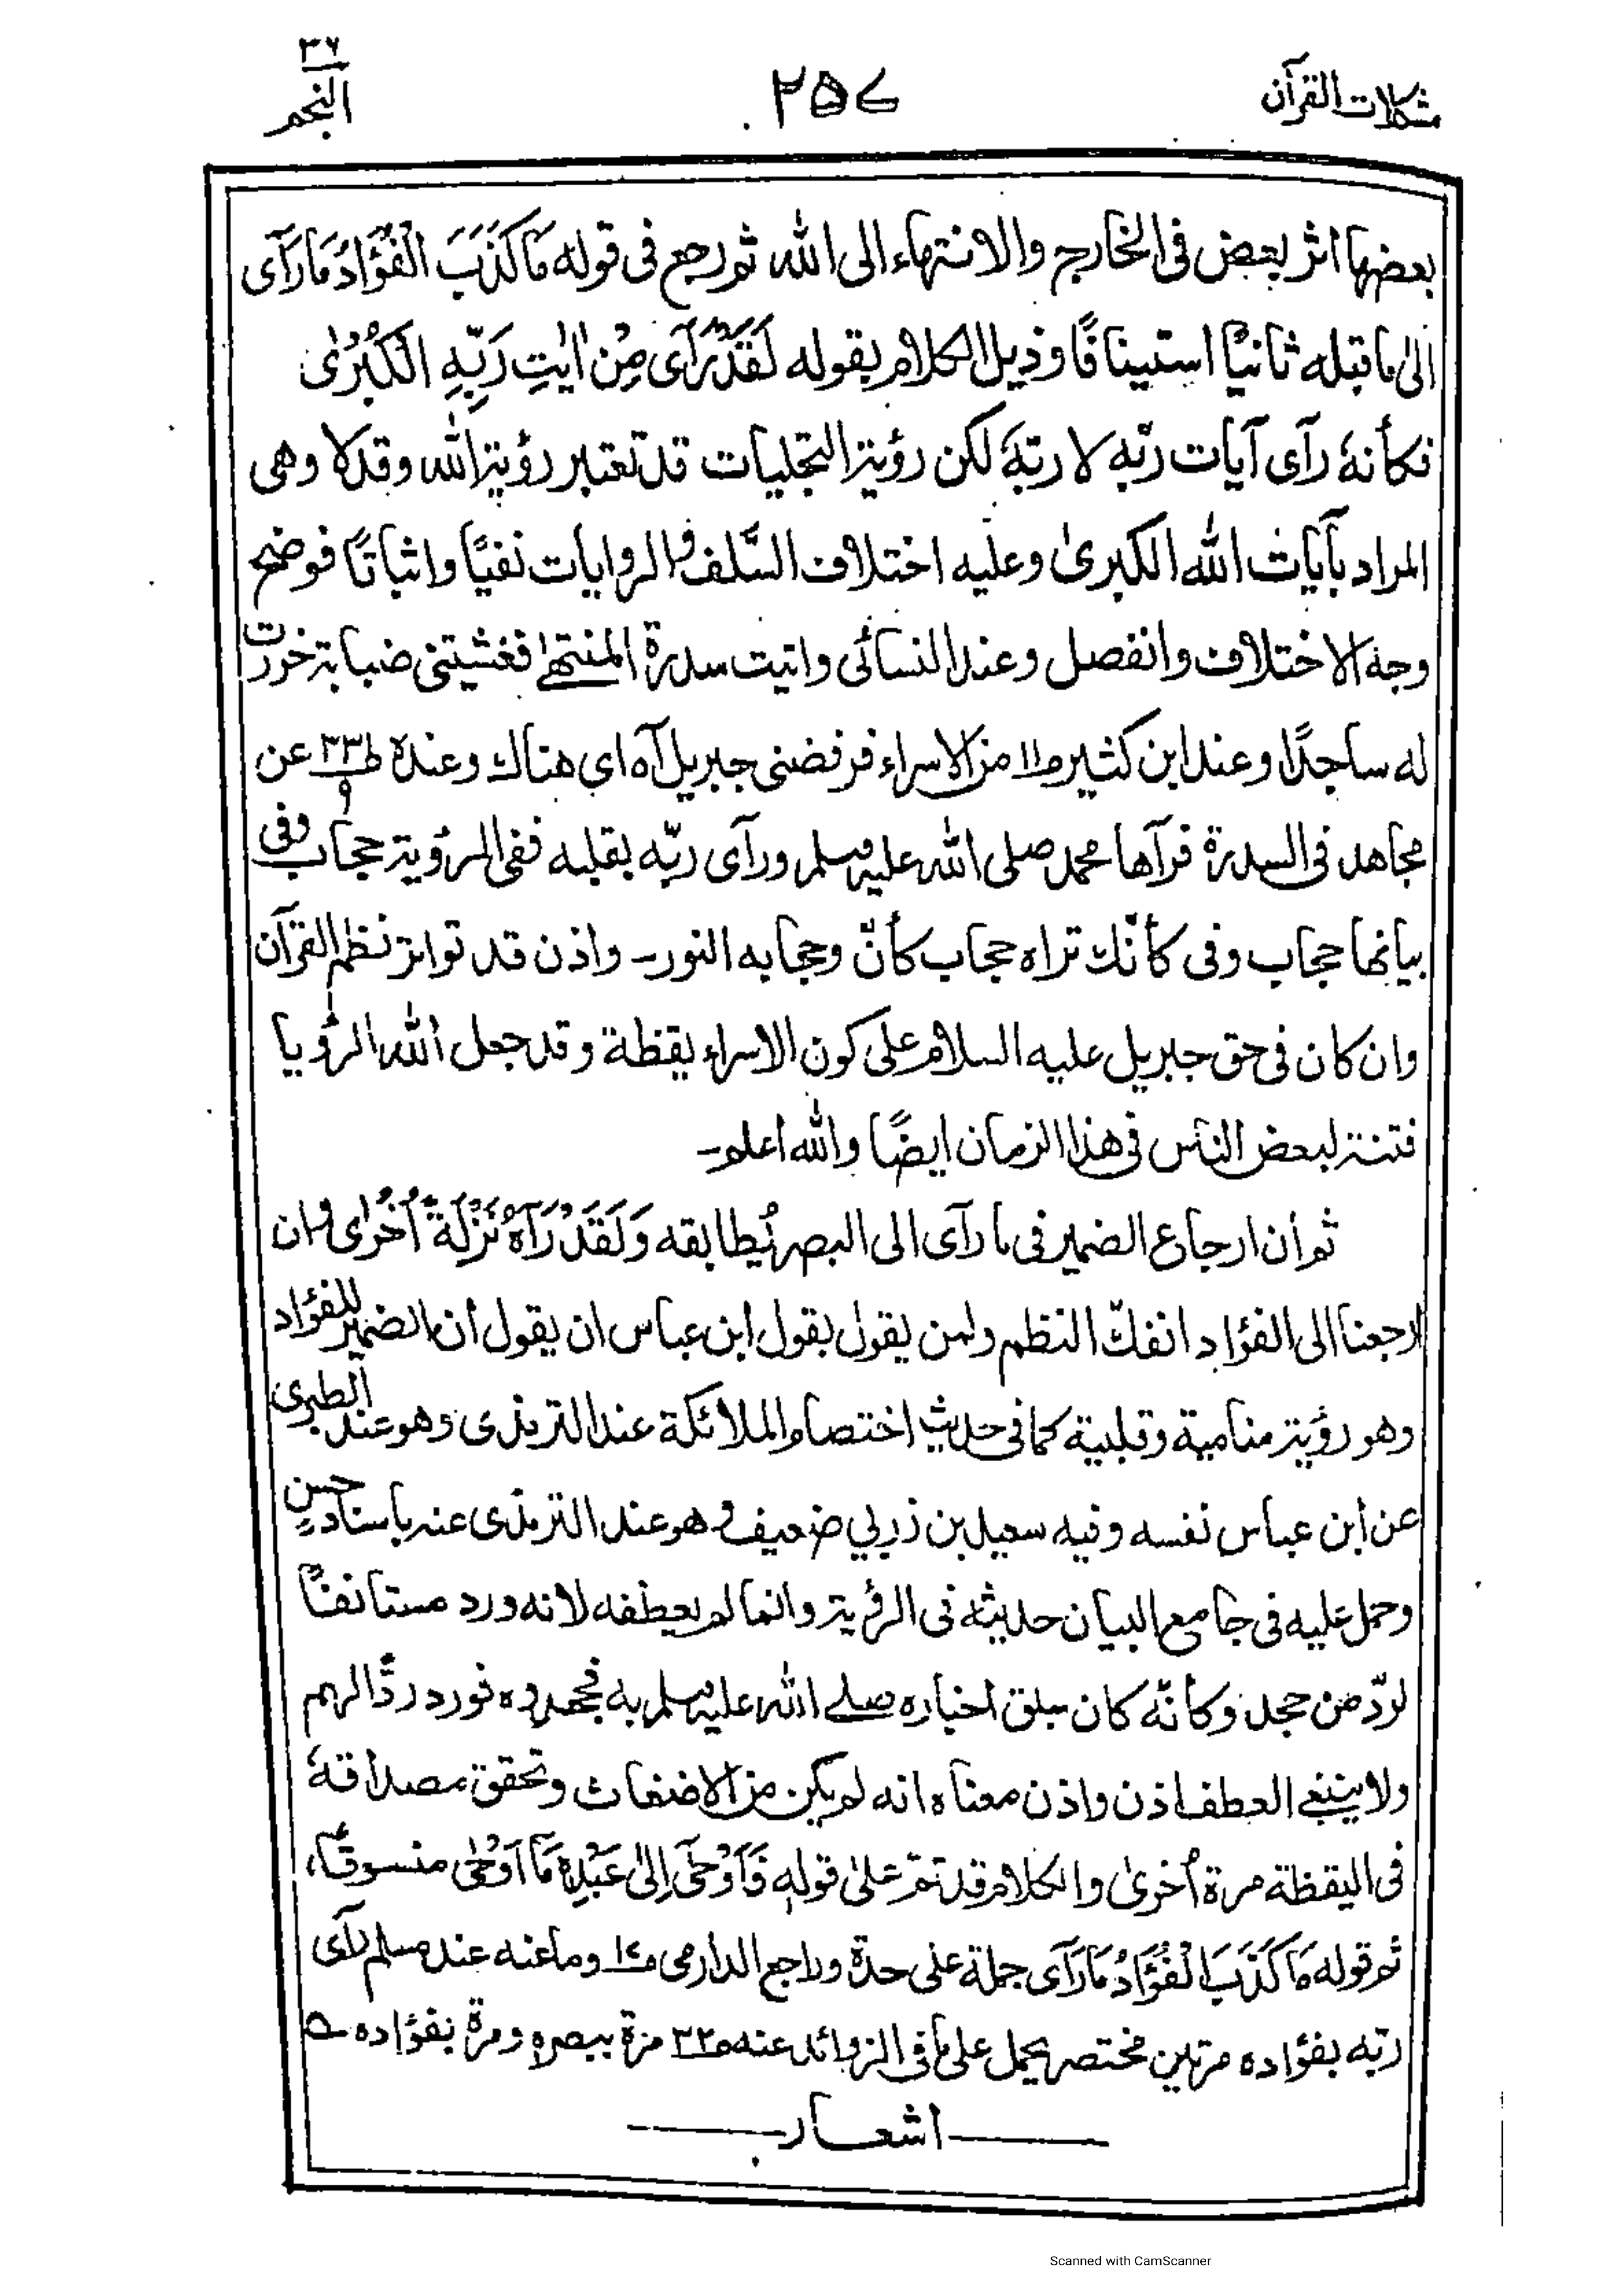 مشكلات القرآن
٢٥٧
٢٧
النجم
بعضها اثر بعض فى الخارج والانتهاء الى الله ثم رجع فى قوله مَا كَذَبَ الْفُؤَادُ مَا رَآى
الىٰ ما قبله ثانيًا استينافًا وذيل الكلام بقوله لَقَدْ رَآى مِنْ اٰيٰتِ رَبِّهِ الْكُبْرٰى
فكأنهٗ رآى آيات ربّه لا ربّهَ لكن رؤية التجليات قد تعتبر رؤية الله وقد لا وهى
المراد بآيات الله الكبرىٰ وعليه اختلاف السَّلف والروايات نفيًا واثباتًا فوضح
وجه الاختلاف وانفصل وعند النسائى واتيت سدرة المنتهىٰ فغشيتنى ضبابة خررت
له ساجدًا وعند ابن كثير ص١١ من الاسراء فرفضنى جبريل آه اى هناك وعنده ط ٣٣ عن
٩
مجاهد فى السدرة فرآها محمد صلى الله عليه وسلم ورآى ربّه بقلبه ففى المرؤية حجاب وفى
بيانها حجاب وفى كأنّك تراه حجاب كأنّ وحجابه النور۔ واذن قد تواتر نظم القرآن
وان كان فى حق جبريل عليه السلام على كون الاسراء يقظة وقد جعل الله الرؤيا
فتنة لبعض الناس فى هذا الزمان ايضًا والله اعلم۔
ثم أن ارجاع الضمير فى ما رآى الى البصر يُطابقه وَلَقَدْ رَآهُ نَزْلَةً أُخْرٰى وان
ارجعنا الى الفؤاد انفكّ النظم ولمن يقول بقول ابن عباس ان يقول أن الضمير للفؤاد
وهو رؤية منامية وقلبية كما فى حديث اختصام الملائكة عند الترمذى وهو عند الطبرى
عن ابن عباس نفسه وفيه سعيد بن زربي ضعيف وهو عند الترمذى عنه باسناد حسنٍ
وحمل عليه فى جامع البيان حديثه فى الرؤية وانما لم يعطفه لانه ورد مستانفًا
لردّ من جحد وكأنّه كان سبق اخباره صلے الله عليه وسلم به فجحدوه فورد ردًّا لهم
ولا ينبغى العطف اذن واذن معناه انه لم يكن من الاضغاث وتحقق مصداقهٗ
فى اليقظة مرة أخرىٰ والكلام قد تمّ علىٰ قولهٖ فَاَوْحٰى اِلىٰ عَبْدِهٖ مَا اَوْحٰى منسوقًا،
ثم قوله مَا كَذَبَ الْفُؤَادُ مَا رَآى جملة على حدة وراجع الدارمى وما عنه عند مسلم رآى
ربّه بفؤاده مرتين مختصر يحمل علىٰ ما فى الزوائد عنه مرّة ببصرهٖ ومرة بفؤاده
اشعار
Scanned with CamScanner